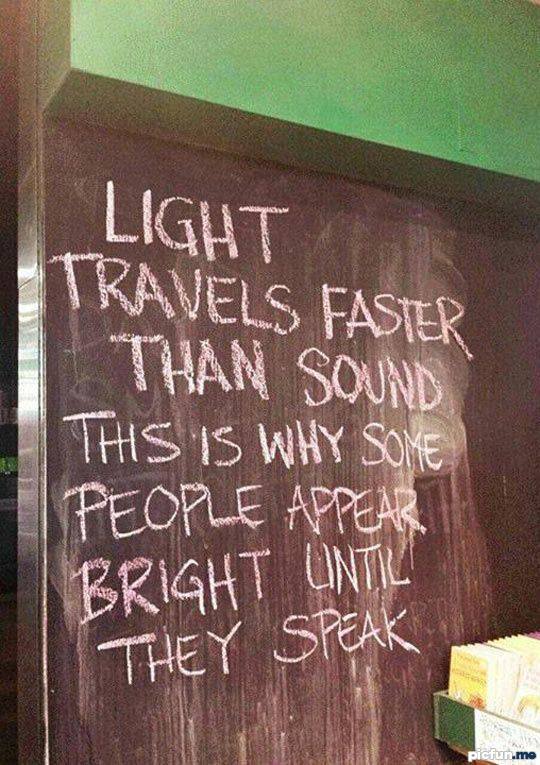 LIGHT
TRAVELS FASTER
THAN SOUND
THIS IS WHY SOME
PEOPLE APPEAR
BRIGHT UNTIL
THEY SPEAK
picfun.me